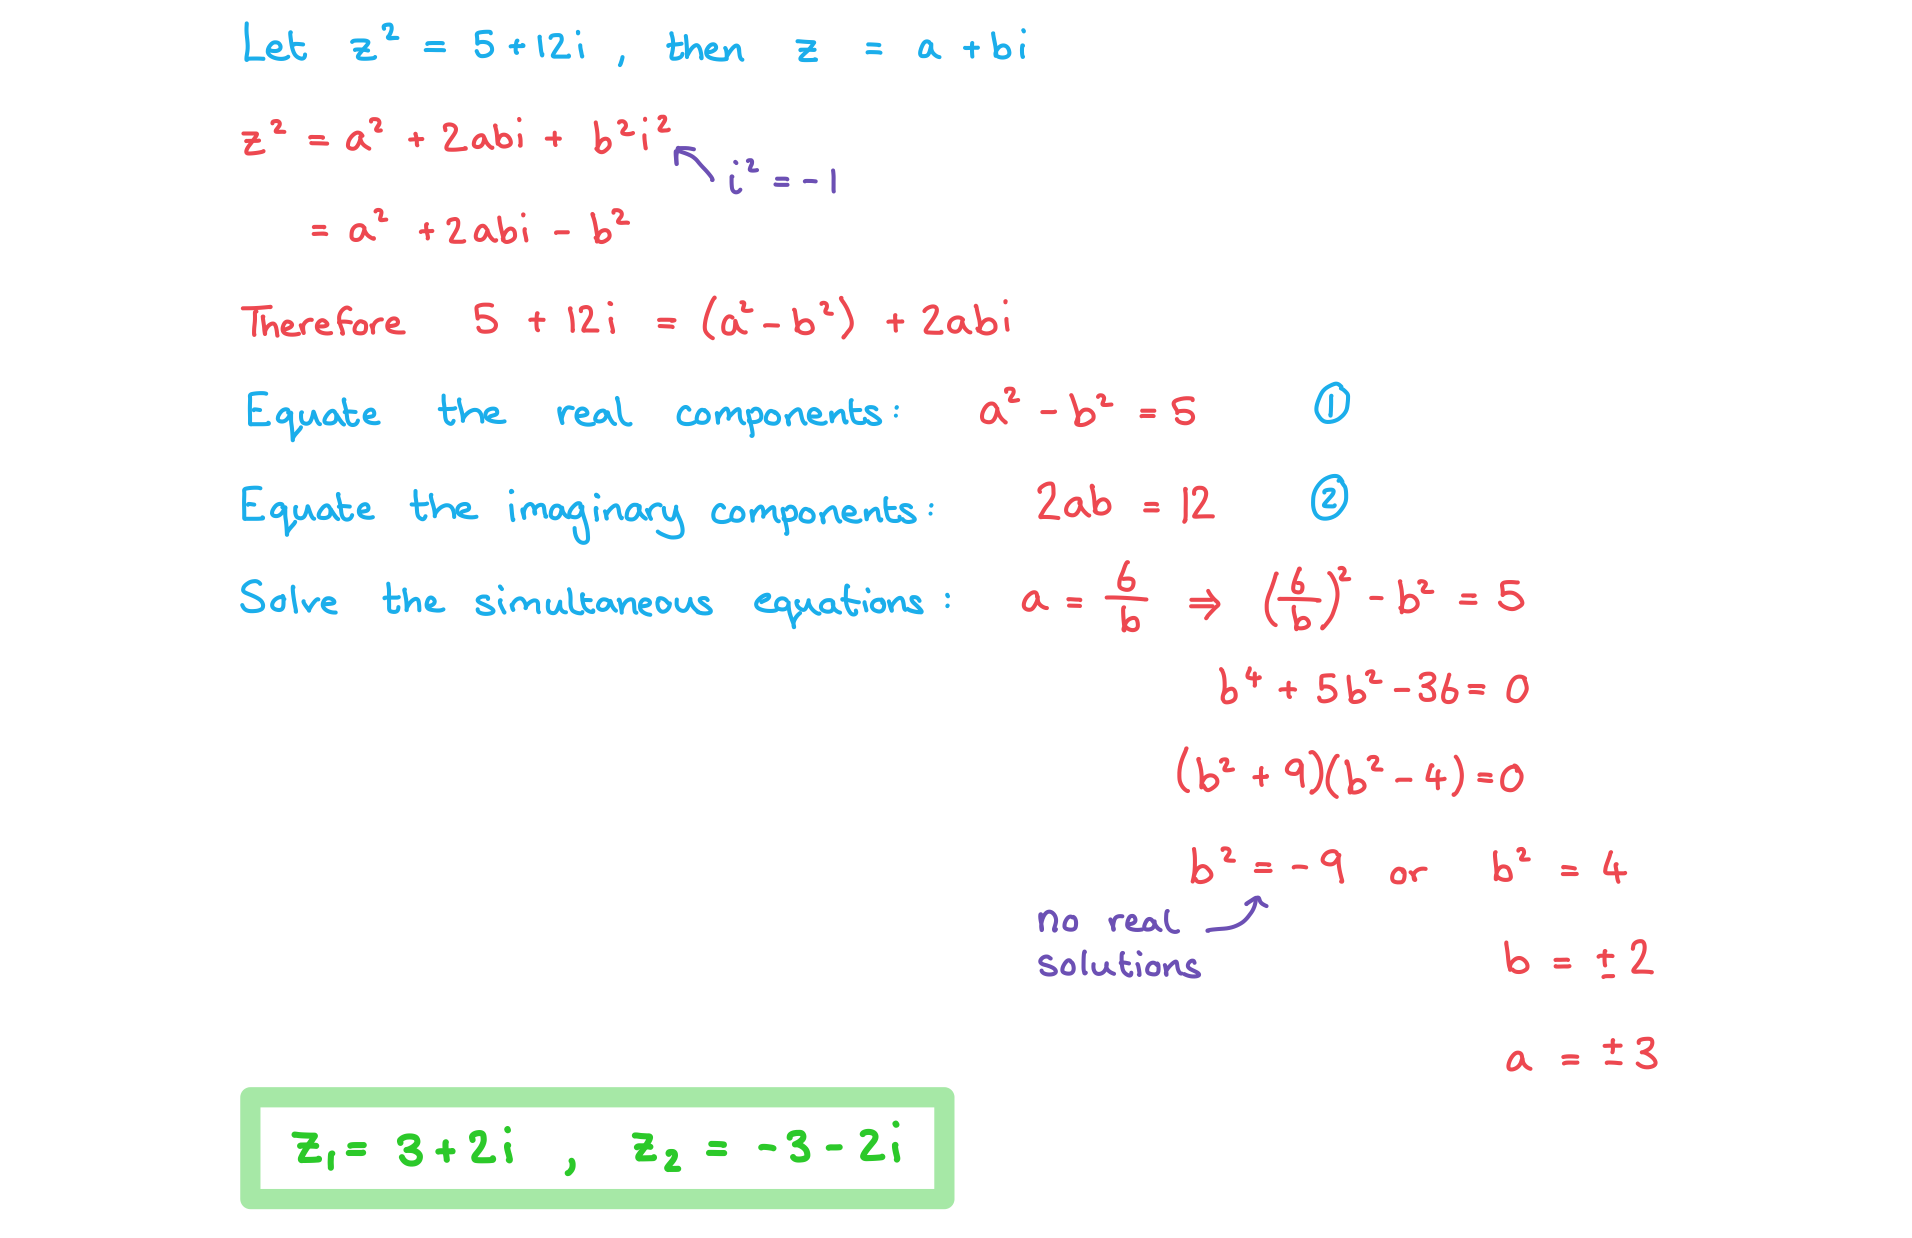 Let z² = 5 + 12i , then z = a + bi
z² = a² + 2abi + b²i²
i² = -1
= a² + 2abi - b²
Therefore 5 + 12i = (a² - b²) + 2abi
Equate the real components: a² - b² = 5 ①
Equate the imaginary components: 2ab = 12 ②
Solve the simultaneous equations: a = 6/b ⇒ (6/b)² - b² = 5
b⁴ + 5b² - 36 = 0
(b² + 9)(b² - 4) = 0
b² = -9 or b² = 4
no real
solutions
b = ± 2
a = ± 3
z₁ = 3 + 2i , z₂ = -3 - 2i